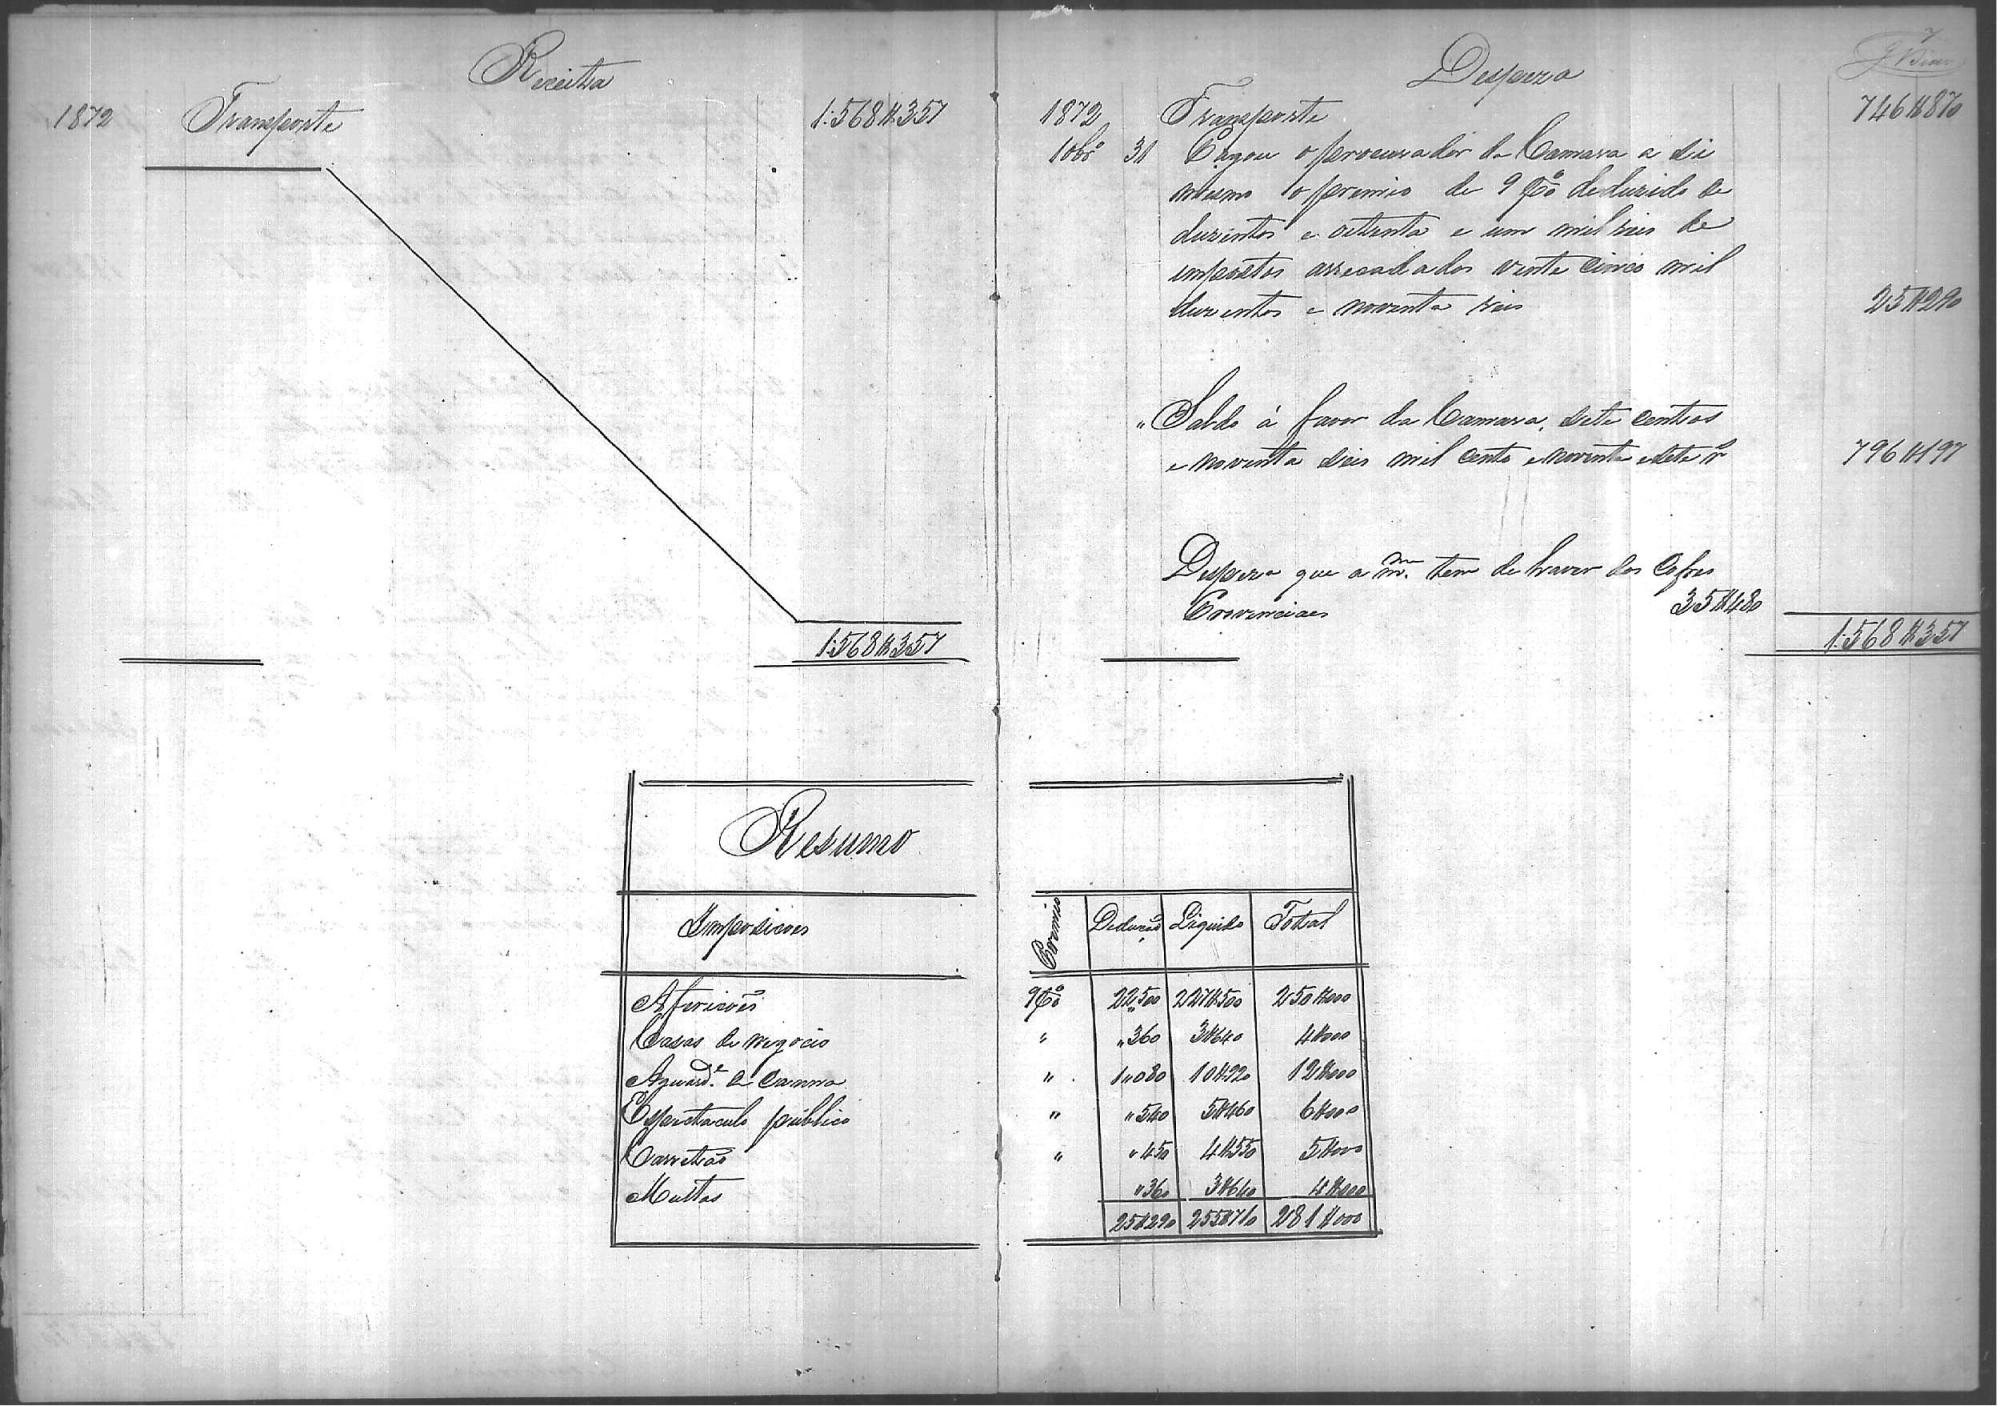 Receita
1872 Transporte 1:568$357
1:568$357
Despeza
7
1872 Transporte 746$870
10bro 31 Pagou o procurador da Camara a si
mesmo o premio de 9 % deduzido de
duzentos e oitenta e um mil reis de
impostos arrecadados vinte cinco mil
duzentos e noventa reis 25$290
" Saldo á favor da Camara, sete centos
e noventa seis mil cento e noventa e sete rs 796$197
Despeza que a mma. tem de haver dos Cofres
Provinciaes 35$480
1:568$357
Resumo
Imposicoes Premio Deducção Liquido Total
Afericoẽs 9% 22,,500 227$500 250$000
Casas de negocio " "360 3$640 4$000
Aguarde. de canna " 1"080 10$920 12$000
Espectaculo publico " "540 5$460 6$000
Carretão " "450 4$550 5$000
Multas "360 3$640 4$000
25$290 255$710 281$000